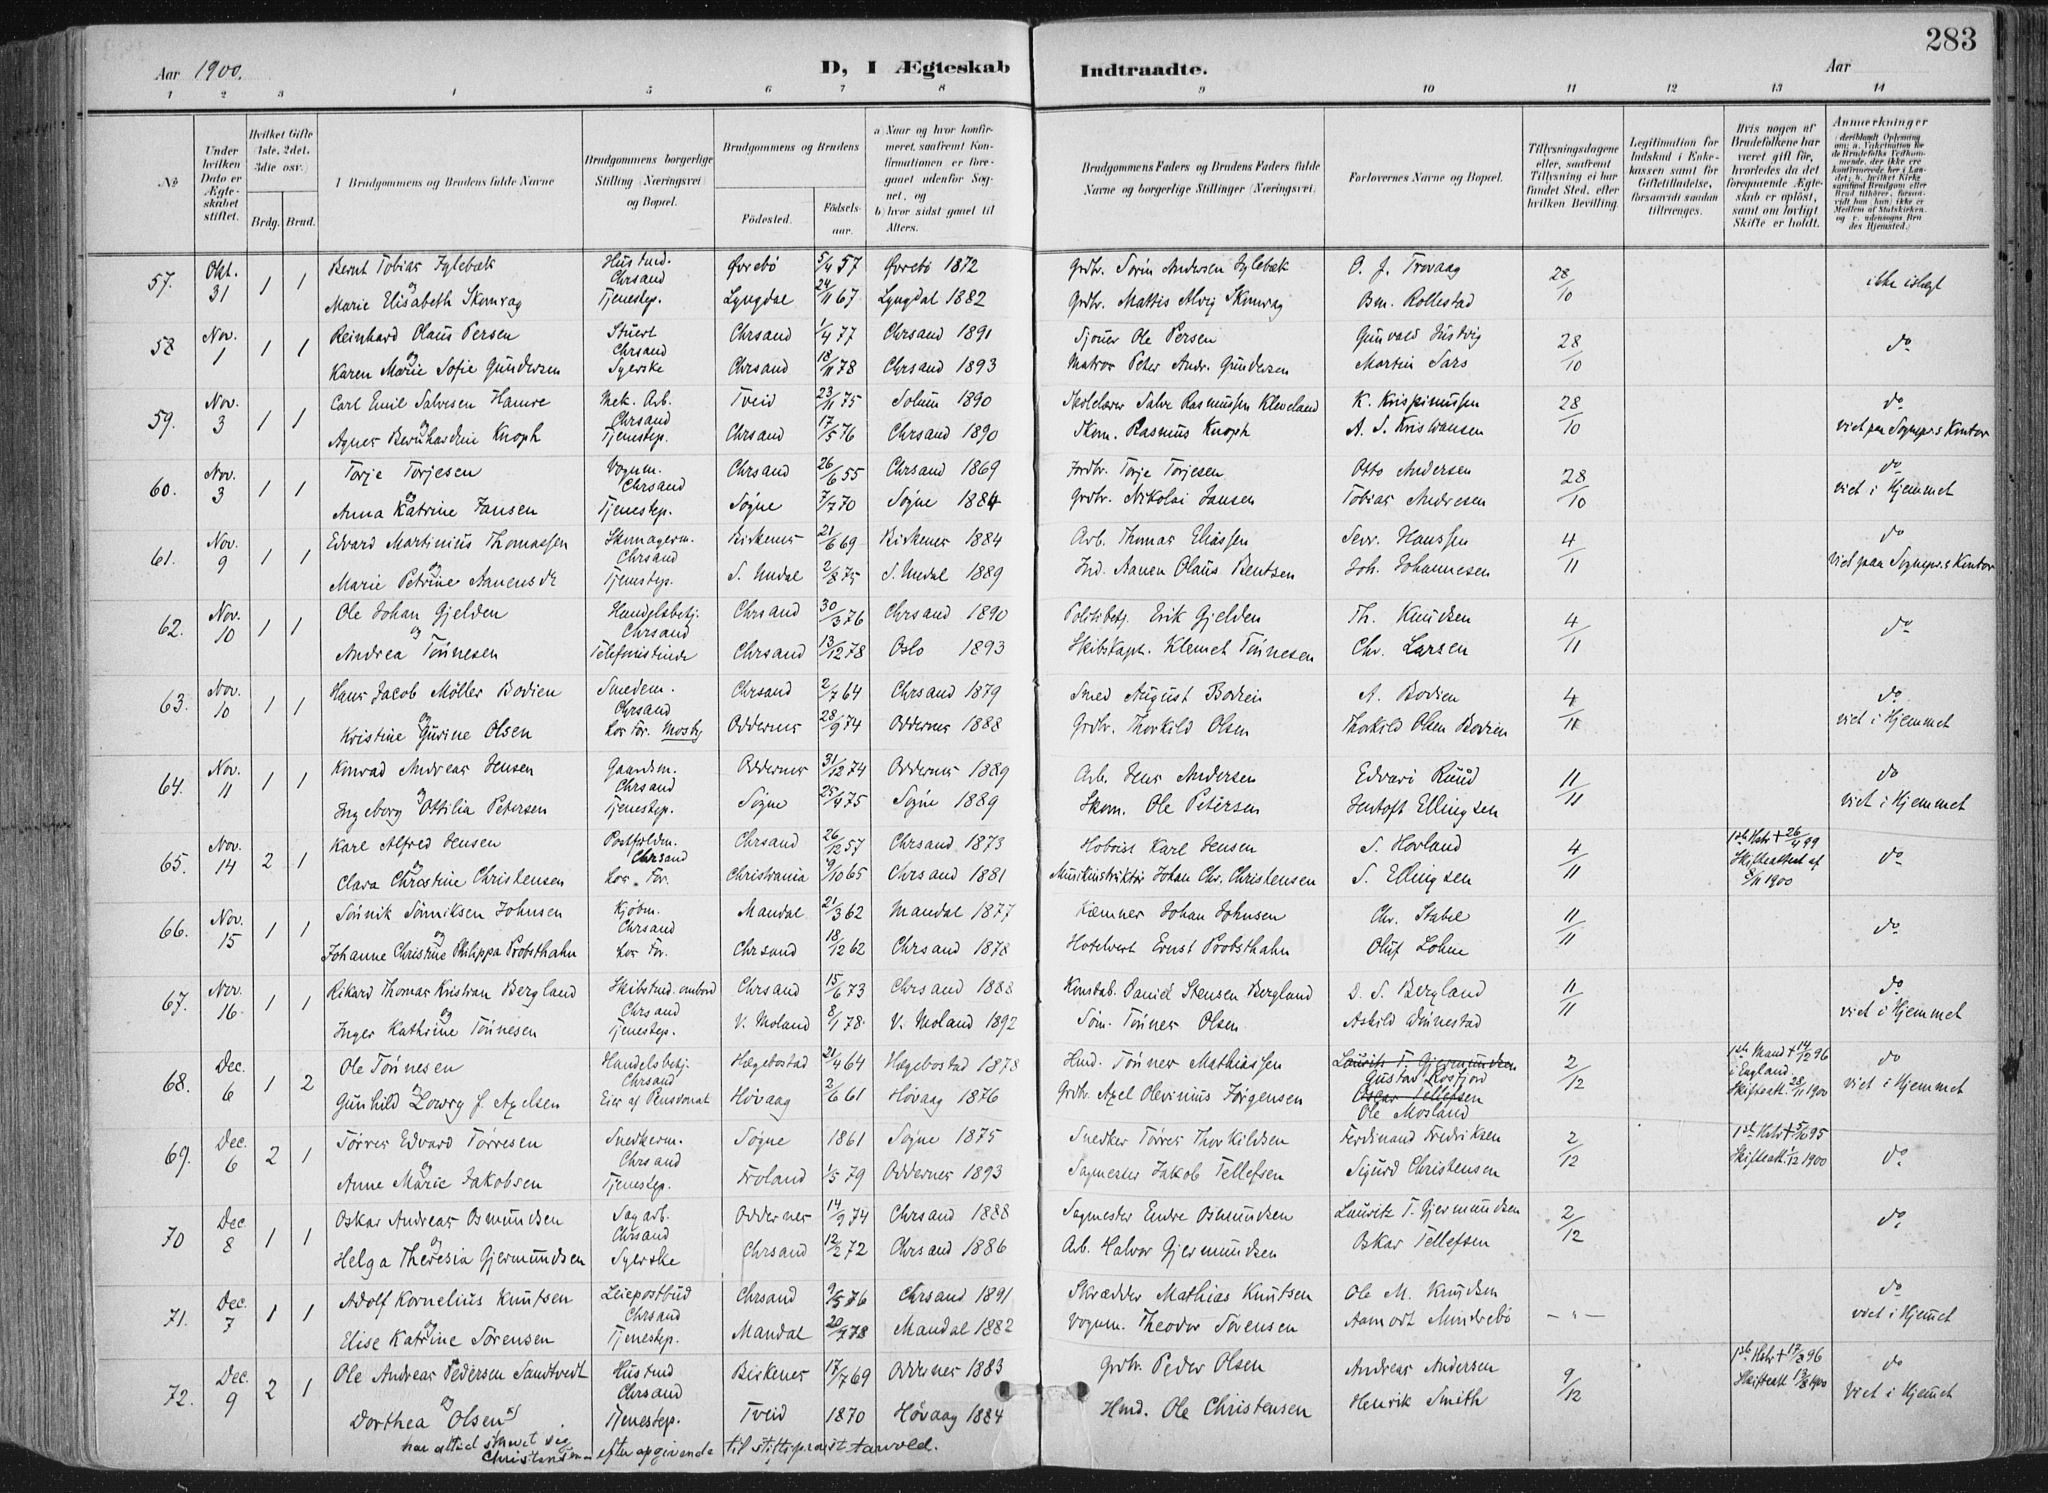 283
Aar 1900.
D, I Ægteskab Indtraadte.
Aar
1 2 3 4 5 6 7 8 9 10 11 12 13 14
No
Under hvilken Dato er Ægteskabet stiftet.
Hvilket Gifte (1ste, 2det, 3die osv.)
Brdg. Brud.
I Brudgommens og Brudens fulde Navne
Brudgommens borgerlige Stilling (Næringsvei) og Bopæl.
Brudgommens og Brudens
Fødested. Fødselsaar.
a) Naar og hvor konfirmeret, saafremt Konfirmationen er foregaaet udenfor Sognet, og
b) hvor sidst gaaet til Alters.
Brudgommens Faders og Brudens Faders fulde Navne og borgerlige Stillinger (Næringsvei).
Forlovernes Navne og Bopæl.
Tillysningsdagene eller, saafremt Tillysning ei har fundet Sted, efter hvilken Bevilling.
Legitimation for Indskud i Enkekassen samt for Giftetilladelse, forsaavidt saadan tiltrænges.
Hvis nogen af Brudefolkene har været gift før, hvorledes da det foregaaende Ægteskab er opløst, samt om lovligt Skifte er holdt.
Anmærkninger
57. Okt. 31 1 1 Bernt Tobias
Chrsand Øvrebø 5/4 57 Øvrebø 1872 Grdbr. O. J. 28/10
og
Marie Elisabeth Skomrag Tjenestep. Lyngdal 24/11 67 Lyngdal 1882 Grdbr. Mattis Skomrag Bm. Rollestad ikke islægt
58 Nov. 1 1 1 Reinhard Olaus Persen Stuert Chrsand Chrsand 1/4 77 Chrsand 1891 Sjouer Ole Persen Gunvald 28/10 do
og
Karen Marie Sofie Gundersen Syerske Chrsand 18/11 78 Chrsand 1893 Matros Peter Andr. Gundersen Martin Sars
59. Nov. 3 1 1 Carl Emil Salvesen Hamre Mek. Arb. Chrsand Tveid 23/11 75 Solum 1890 Skolelærer Salve Rasmussen Kleveland K. Krispinussen 28/10 do
og
Agnes Bernhardine Knoph Tjenestep. Chrsand 17/5 76 Chrsand 1890 Skom. Rasmus Knoph A. S. Kristiansen viet paa Sognepr.s Kontor
60. Nov. 3 1 1 Torje Torjesen Vognm. Chrsand Chrsand 26/6 55 Chrsand 1869 Jordbr. Torje Torjesen Otto Andersen 28/10 do
og
Anna Katrine Jansen Tjenestep. Søgne 7/7 70 Søgne 1884 Grdbr. Nikolai Jansen Tobias Andresen viet i Hjemmet
61. Nov. 9 1 1 Edvard Martinius Thomassen Skomagerm. Chrsand Birkenes 21/6 69 Birkenes 1884 Arb. Thomas Eliassen Sevr. Hanssen 4/11 do
og
Marie Petrine Tjenestep. S. Undal 2/8 75 S. Undal 1889 Ind. Aanen Olaus Bentsen Joh. Johannesen viet paa Sognepr.s Kontor
62. Nov. 10 1 1 Ole Johan Gjelden Handelsbetj. Chrsand Chrsand 30/3 76 Chrsand 1890 Politibetj. Erik Gjelden Th. Knudsen 4/11 do
og
Andrea Tønnesen Telefonistinde Chrsand 13/12 78 Oslo 1893 Skibskapt. Klemet Tønnesen Chr. Larsen
63. Nov. 10 1 1 Hans Jacob Møller Bodien Smedem. Chrsand Chrsand 2/7 64 Chrsand 1879 Smed August Bodien A. Bodien 4/11 do
og
Kristine Gurine Olsen hos For. Mosby Oddernes 28/9 74 Oddernes 1888 Grdbr. Thorkild Olsen Thorkild Olsen Bodien viet i Hjemmet
64. Nov. 11 1 1 Konrad Andreas Jensen Gaardsm. Chrsand Oddernes 31/12 74 Oddernes 1889 Arb. Jens Andersen Edvard Ruud 11/11 do
og
Ingeborg Ottilia Petersen Tjenestep. Søgne 25/4 75 Søgne 1889 Skom. Ole Petersen Jentoft Ellingsen viet i Hjemmet
65. Nov. 14 2 1 Karl Alfred Jensen Postfuldm. Chrsand Chrsand 26/12 57 Chrsand 1873 Hoboist Karl Jensen S. Hovland 4/11 1ste Hstr + 26/4 99 do
og
Clara Christine Christensen hos For. Christiania 9/10 65 Chrsand 1881 Musikinstruktør Johan Chr. Christensen S. Ellingsen Skifteattest af 8/11 1900
66. Nov. 15 1 1 Sønnik Sønniksen Johnsen Kjøbm. Chrsand Mandal 21/3 62 Mandal 1877 Kæmner Johan Johnsen Chr. Stabel 11/11 do
og
Johanne Christine Philippa Probsthahn hos For. Chrsand 18/12 62 Chrsand 1878 Hotelvert Ernst Probsthahn Oluf Lohne
67. Nov. 16 1 1 Rikard Thomas Kristian Bergland Skibstud. ombord Chrsand Chrsand 15/6 73 Chrsand 1888 Konstab. Daniel Stensen Bergland D. S. Bergland 11/11 do
og
Inger Kathrine Tønnesen Tjenestep. V. Moland 8/1 78 V. Moland 1892 Søm. Tønnes Olsen Askild viet i Hjemmet
68. Dec. 6 1 2 Ole Tønnesen Handelsbetj. Chrsand Hægebostad 21/4 64 Hægebostad 1878 Hmd. Tønnes Mathiassen Lauritz T. Gjermundsen Gustav Rosfjord 2/12 1ste Mand + 14/12 96 i England do
og
Gunhild Lowry f. Axelsen Eier af Pensionat Høvaag 2/6 61 Høvaag 1876 Grdbr. Axel Olevinius Jørgensen Oscar Tellefsen Ole Mosland Skifteatt. 28/11 1900 viet i Hjemmet
69. Dec. 6 2 1 Tørres Edvard Tørresen Snedkerm. Chrsand Søgne 1861 Søgne 1875 Snedker Tørres Thorkildsen Ferdinand Fredriksen 2/12 1ste Hstr + 5/10 95 do
og
Anne Marie Jakobsen Tjenestep. Froland 1/5 79 Oddernes 1893 Sagmester Jakob Tellefsen Sigurd Christensen Skifteatt. 1/12 1900
70 Dec 8 1 1 Oskar Andreas Osmundsen Sagarb. Chrsand Oddernes 14/9 74 Chrsand 1888 Sagmester Endre Osmundsen Lauritz T. Gjermundsen 2/12 do
og
Helga Theresia Gjermundsen Syerske Chrsand 12/2 72 Chrsand 1886 Arb. Halvor Gjermundsen Oskar Tellefsen
71. Dec. 7 1 1 Adolf Kornelius Knutsen Leiepostbud Chrsand Chrsand 9/5 76 Chrsand 1891 Skrædder Mathias Knutsen Ole M. Knudsen — " — do
og
Elise Katrine Sørensen Tjenestep. Mandal 20/7 78 Mandal 1882 Vognm. Theodor Sørensen Aamodt Mindrebø viet i Hjemmet
72. Dec. 9 2 1 Ole Andreas Pedersen Sandtvedt Hustud Chrsand Birkenes 17/7 69 Oddernes 1883 Grdbr. Peder Olsen Andreas Andersen 9/12 1ste Hstr + 17/8 96 do
og
Dorthea Olsen x) Tjenestep. Tveid 1870 Høvaag 1884 Hmd. Ole Christensen Henrik Smith viet i Hjemmet
har altid skrevet sig
Christensen efter opgivende til stiftsprovst